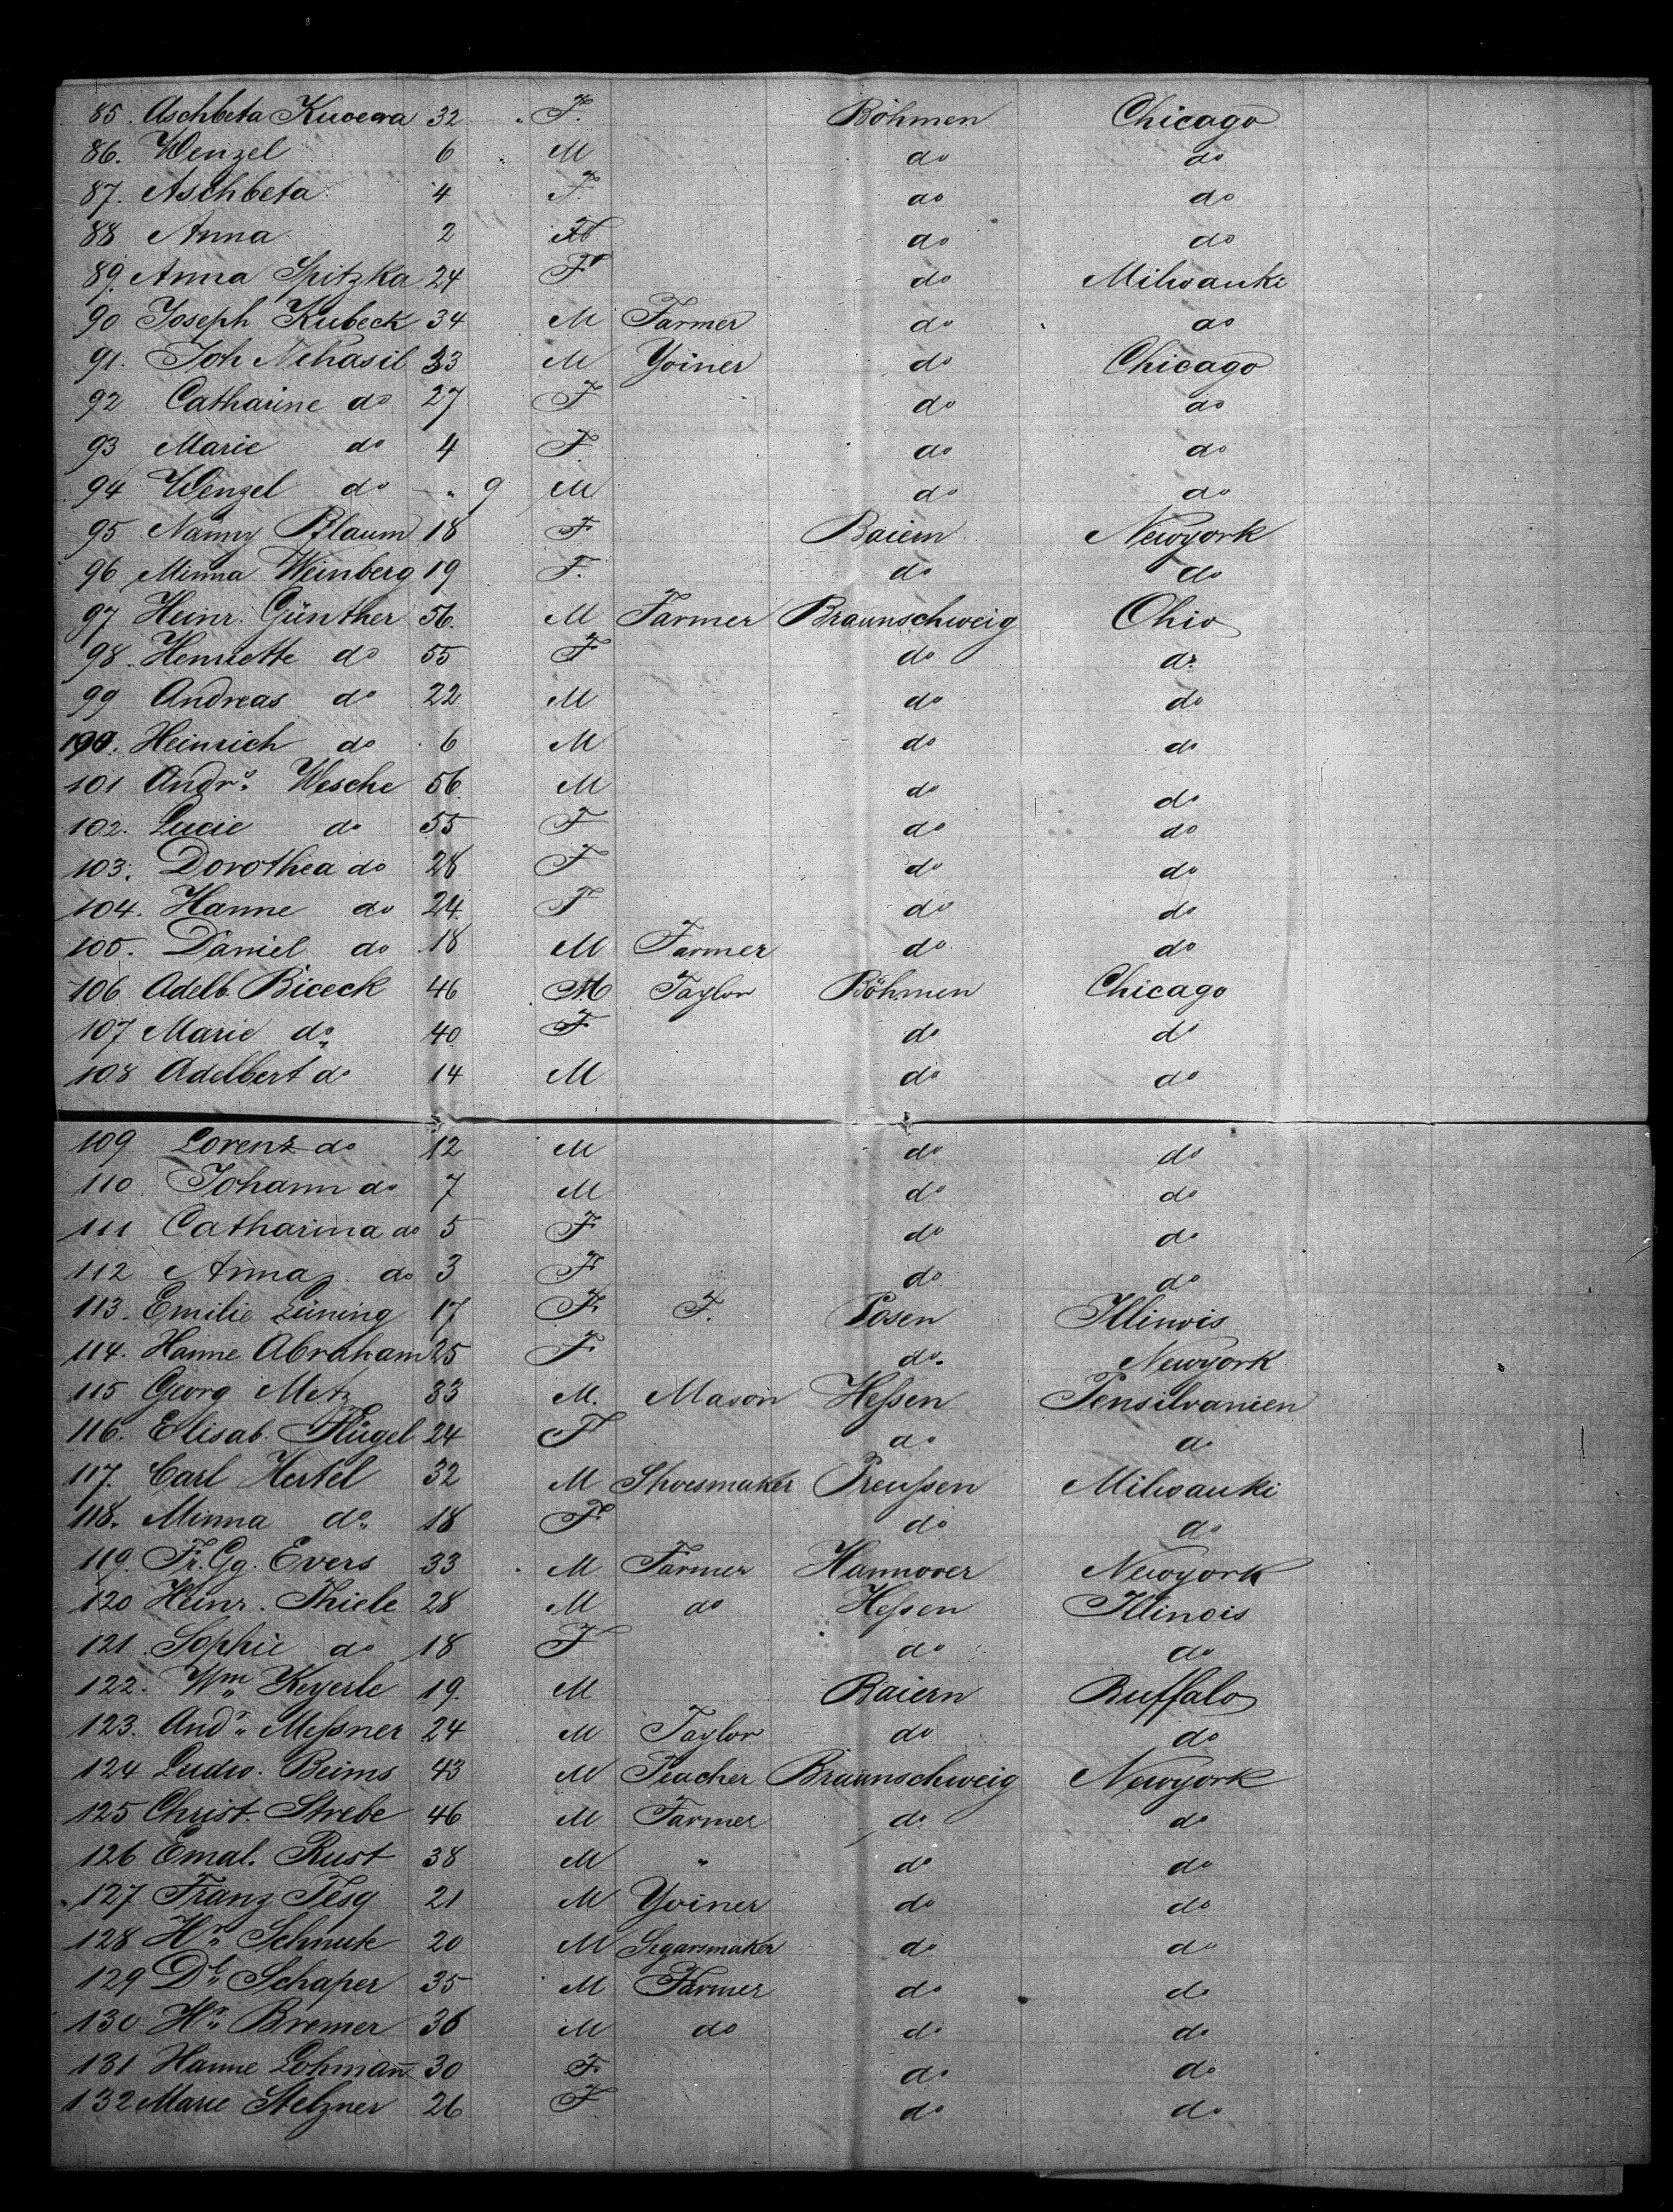 85. Aschbeta Kucera 32 F. Böhmen Chicago
86. Wenzel 6 M do do
87. Aschbeta 4 F. do do
88 Anna 2 F do do
89. Anna Spitzka 24 F do Milwauki
90 Joseph Kubeck 34 M Farmer do do
91. Joh Nehasil 33 M Yoiner do Chicago
92 Catharine do 27 F do do
93 Marie do 4 F. do do
94 Wenzel do " 9 M do do
95 Nanny Pflaum 18 F Baiern Newyork
96 Minna Weinberg 19 F. do do
97 Heinr. Günther 56. M Farmer Braunschweig Ohio
98. Henriette do 55 F do do
99 Andreas do 22 M do do
100. Heinrich do 6 M do do
101 Andrs. Wesche 56. M do do
102. Lucie do 55 F do do
103. Dorothea do 28 F do do
104. Hanne do 24. F do do
105. Daniel do 18 M Farmer do do
106 Adelb. Biceck 46 M Taylor Böhmen Chicago
107 Marie do 40 F do do
108 Adelbert do 14 M do do
109 Lorenz do 12 M do do
110 Johann do 7 M do do
111 Catharina do 5 F do do
112 Anna do 3 F do do
113. Emilie Lüning 17 F. F. Posen Illinois
114. Hanne Abraham 25 F do. Newyork
115 Georg Metz 33 M. Mason Heßen Pensilvanien
116. Elisab. Flügel 24 F do do
117. Carl Hertel 32 M Shoesmaker Preußen Milwauki
118. Minna do 18 F do do
119. Fr. Gg. Evers 33 M Farmer Hannover Newyork
120 Heinr. Thiele 28 M do Heßen Illinois
121. Sophie do 18 F do do
122. Wm Keyerle 19. M Baiern Buffalo
123. Andr. Meßner 24 M Taylor do do
124 Ludw. Beims 43 M Teacher Braunschweig Newyork
125 Christ. Strebe 46 M Farmer do do
126 Emal. Rust 38 M " do do
127 Franz Tesg 21 M Yoiner do do
128 Hr. Schnuk 20 M Segarsmaker do do
129 Dl. Schaper 35 M Farmer do do
130 Hr. Bremer 36 M do do do
131 Hanne Lohman̄ 30 F. do do
132 Marie Stelzner 26 F do do